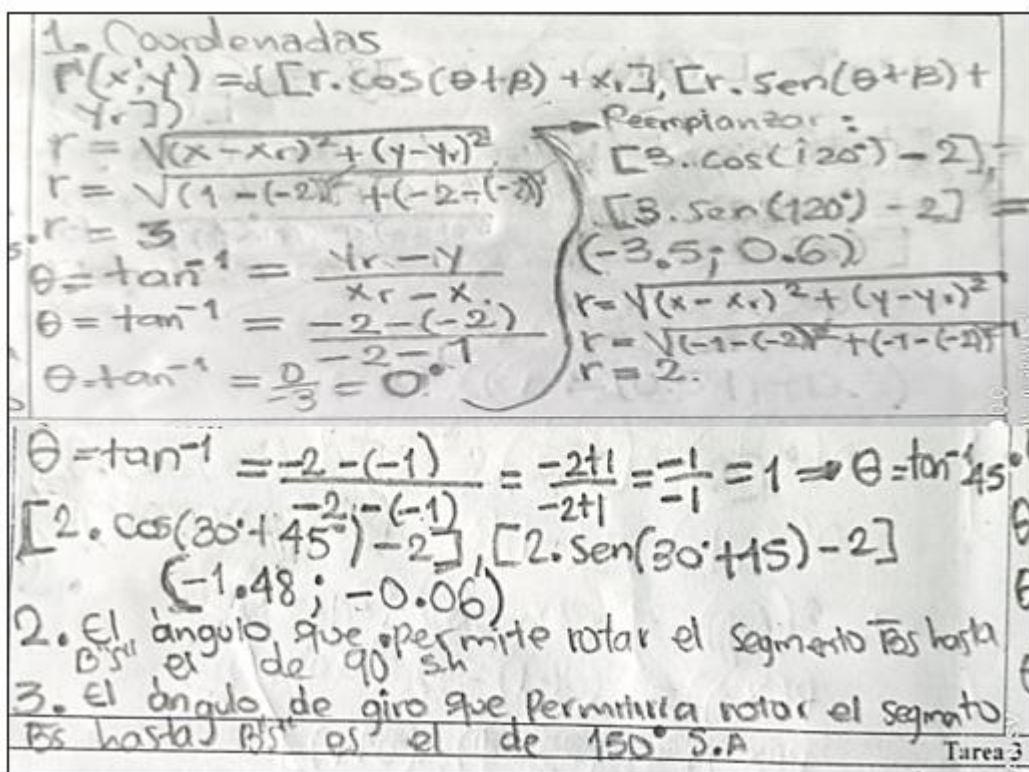 1. Coordenadas
P'(x',y') = {[r.cos(θ+β) + xr], [r.sen(θ+β) +
yr]}
r = √(x-xr)² + (y-yr)²
r = √(1-(-2))² + (-2-(-2))²
r = 3
θ = tan⁻¹ = yr-y / xr-x
θ = tan⁻¹ = -2-(-2) / -2-1
θ = tan⁻¹ = 0/-3 = 0°
Reemplanzar:
[3.cos(120°) - 2],
[3.sen(120°) - 2] =
(-3.5; 0.6)
r = √(x-xr)² + (y-yr)²
r = √(-1-(-2))² + (-1-(-2))²
r = 2.
θ = tan⁻¹ = -2-(-1) / -2-(-1) = -2+1 / -2+1 = -1/-1 = 1 ⇒ θ = tan⁻¹ 45°
[2.cos(30°+45°)-2], [2.sen(30°+45)-2]
(-1.48; -0.06)
2. El ángulo que permite rotar el segmento Bs hasta
B"s" el de 90° sh
3. El ángulo de giro que permitiría rotar el segmnto
Bs hasta B's" es el de 150° S.A
Tarea 3